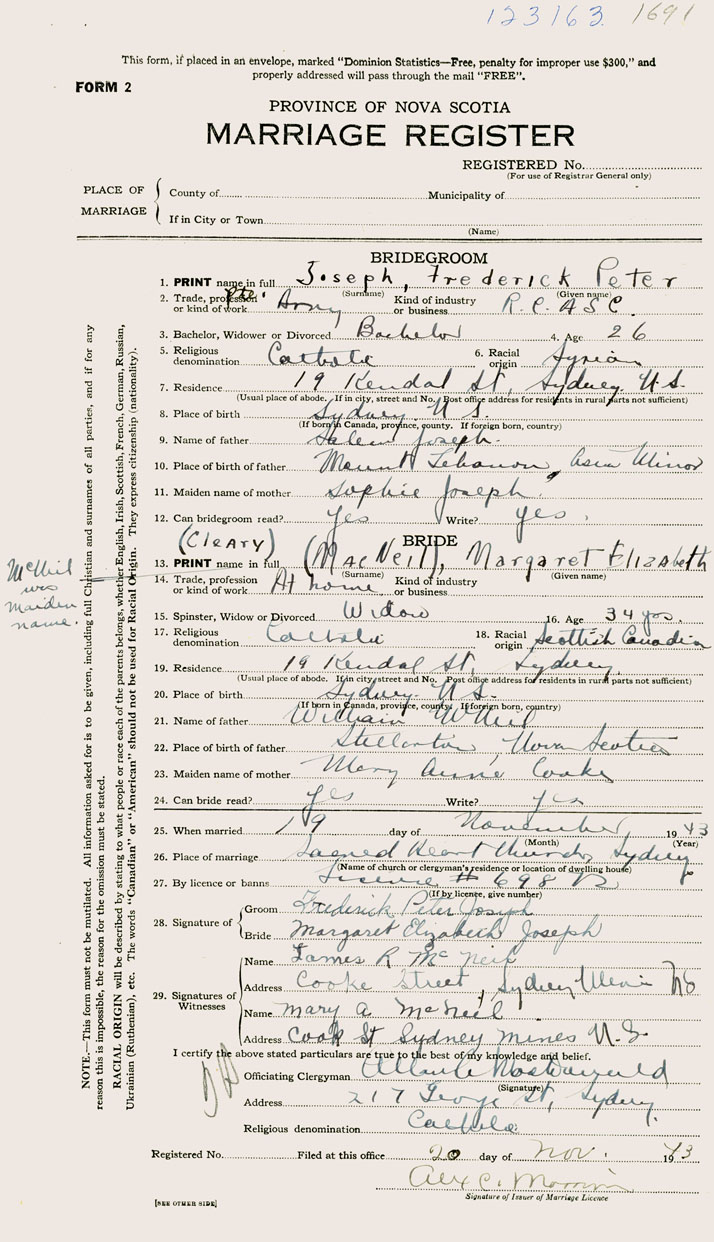 123163. 1691
This form, if placed in an envelope, marked “Dominion Statistics—Free, penalty for improper use $300,” and
properly addressed will pass through the mail “FREE”.
FORM 2
PROVINCE OF NOVA SCOTIA
MARRIAGE REGISTER
REGISTERED No.
(For use of Registrar General only)
PLACE OF MARRIAGE
County of Municipality of
If in City or Town
(Name)
BRIDEGROOM
1. PRINT name in full Joseph, Frederick Peter
(Surname) (Given name)
2. Trade, profession or kind of work Pte. Army Kind of industry or business R.C.A.S.C.
3. Bachelor, Widower or Divorced Bachelor 4. Age 26
5. Religious denomination Catholic 6. Racial origin Syrian
7. Residence 19 Kendal St, Sydney N.S.
(Usual place of abode. If in city, street and No. Post office address for residents in rural parts not sufficient)
8. Place of birth Sydney N.S.
(If born in Canada, province, county. If foreign born, country)
9. Name of father Salem Joseph.
10. Place of birth of father Mount Lebanon, Asia Minor
11. Maiden name of mother Sophie Joseph.
12. Can bridegroom read? Yes Write? yes.
BRIDE
(Cleary)
13. PRINT name in full (MacNeil), Margaret Elizabeth
(Surname) (Given name)
McNeil was Maiden name.
14. Trade, profession or kind of work At home Kind of industry or business
15. Spinster, Widow or Divorced Widow 16. Age 34 yrs.
17. Religious denomination Catholic 18. Racial origin Scottish Canadian
19. Residence 19 Kendal St, Sydney.
(Usual place of abode. If in city, street and No. Post office address for residents in rural parts not sufficient)
20. Place of birth Sydney N.S.
(If born in Canada, province, county. If foreign born, country)
21. Name of father William McNeil
22. Place of birth of father Stellarton, Nova Scotia
23. Maiden name of mother Mary Anne Cooke
24. Can bride read? yes Write? yes
25. When married 19 day of November, 1943
(Month) (Year)
26. Place of marriage Sacred Heart Church, Sydney
(Name of church or clergyman's residence or location of dwelling house)
27. By licence or banns Licence # 698
(If by licence, give number)
28. Signature of Groom Frederick Peter Joseph
Bride Margaret Elizabeth Joseph
29. Signatures of Witnesses
Name James R McNeil
Address Cooke Street, Sydney Mines NS
Name Mary A McNeil
Address Cook St Sydney mines N.S.
I certify the above stated particulars are true to the best of my knowledge and belief.
Officiating Clergyman
(Signature)
Address 217 George St, Sydney.
Religious denomination Catholic
Registered No. Filed at this office 20 day of Nov. 1943
Alex C.
Signature of Issuer of Marriage Licence
[SEE OTHER SIDE]
NOTE.—This form must not be mutilated. All information asked for is to be given, including full Christian and surnames of all parties, and if for any
reason this is impossible, the reason for the omission must be stated.
RACIAL ORIGIN will be described by stating to what people or race each of the parents belongs, whether English, Irish, Scottish, French, German, Russian,
Ukrainian (Ruthenian), etc. The words “Canadian” or “American” should not be used for Racial Origin. They express citizenship (nationality).